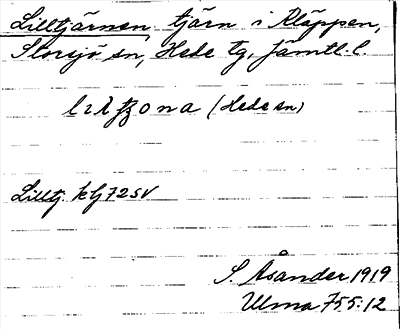 Lilltjärnen, tjärn i Kläppen,
Storsjö sn, Hede tg, Jämtl. l.
(Hede sn)
Lilltj. kbj 72 SV
S. Åsander 1919
Ulma 755:12